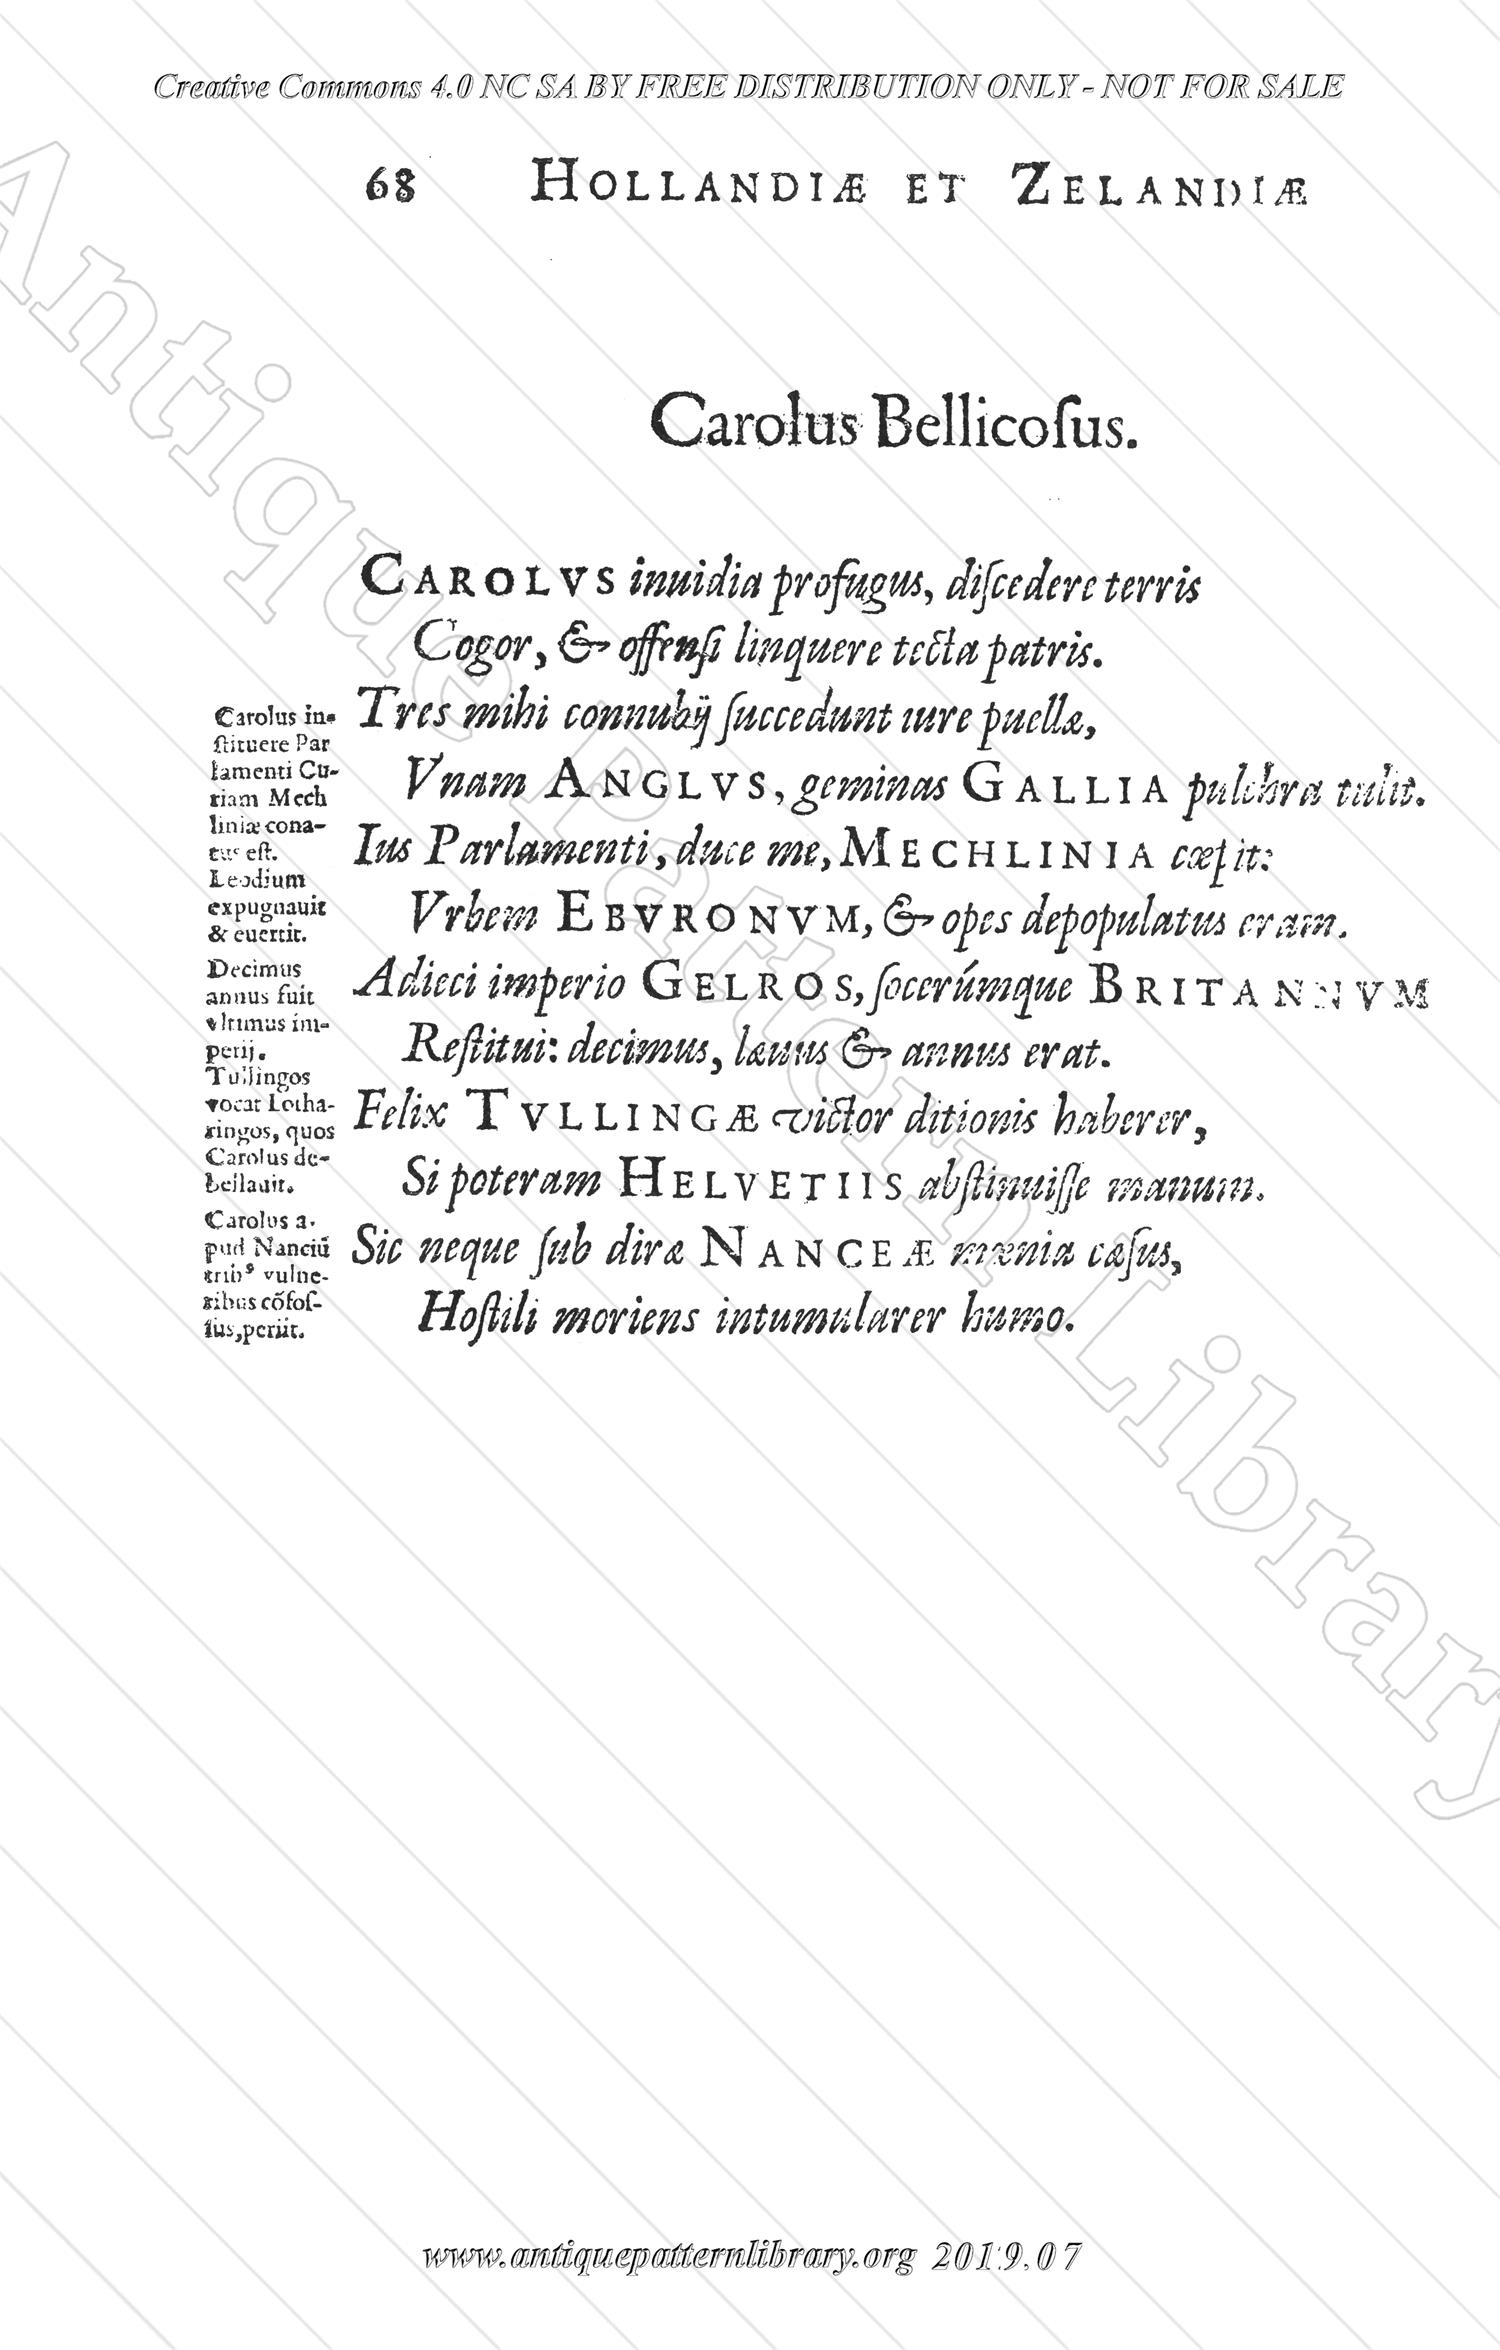 Creative Commons 4.0 NC SA BY FREE DISTRIBUTION ONLY - NOT FOR SALE
68 HOLLANDIÆ ET ZELANDIÆ
Carolus Bellicoſus.
CAROLVS inuidia profugus, diſcedere terris
Cogor, & offenſi linquere tecta patris.
Tres mihi connubij ſuccedunt iure puellæ,
Vnam ANGLVS, geminas GALLIA pulchra tulit.
Ius Parlamenti, duce me, MECHLINIA cæpit:
Vrbem EBVRONVM, & opes depopulatus eram.
Adieci imperio GELROS, ſocerúmque BRITANNVM
Reſtitui: decimus, læuus & annus erat.
Felix TVLLINGÆ victor ditionis haberer,
Si poteram HELVETIIS abſtinuiſſe manum.
Sic neque ſub diræ NANCEÆ mœnia cæſus,
Hoſtili moriens intumularer humo.
Carolus in-
ſtituere Par
lamenti Cu-
riam Mech
liniæ cona-
tus eſt.
Leodium
expugnauit
& euertit.
Decimus
annus fuit
vltimus im-
perij.
Tullingos
vocat Lotha-
ringos, quos
Carolus de-
bellauit.
Carolus a-
pud Nanciū
tribꝰ vulne-
ribus cõfoſ-
ſus, periit.
Antique Pattern Library
www.antiquepatternlibrary.org 2019.07